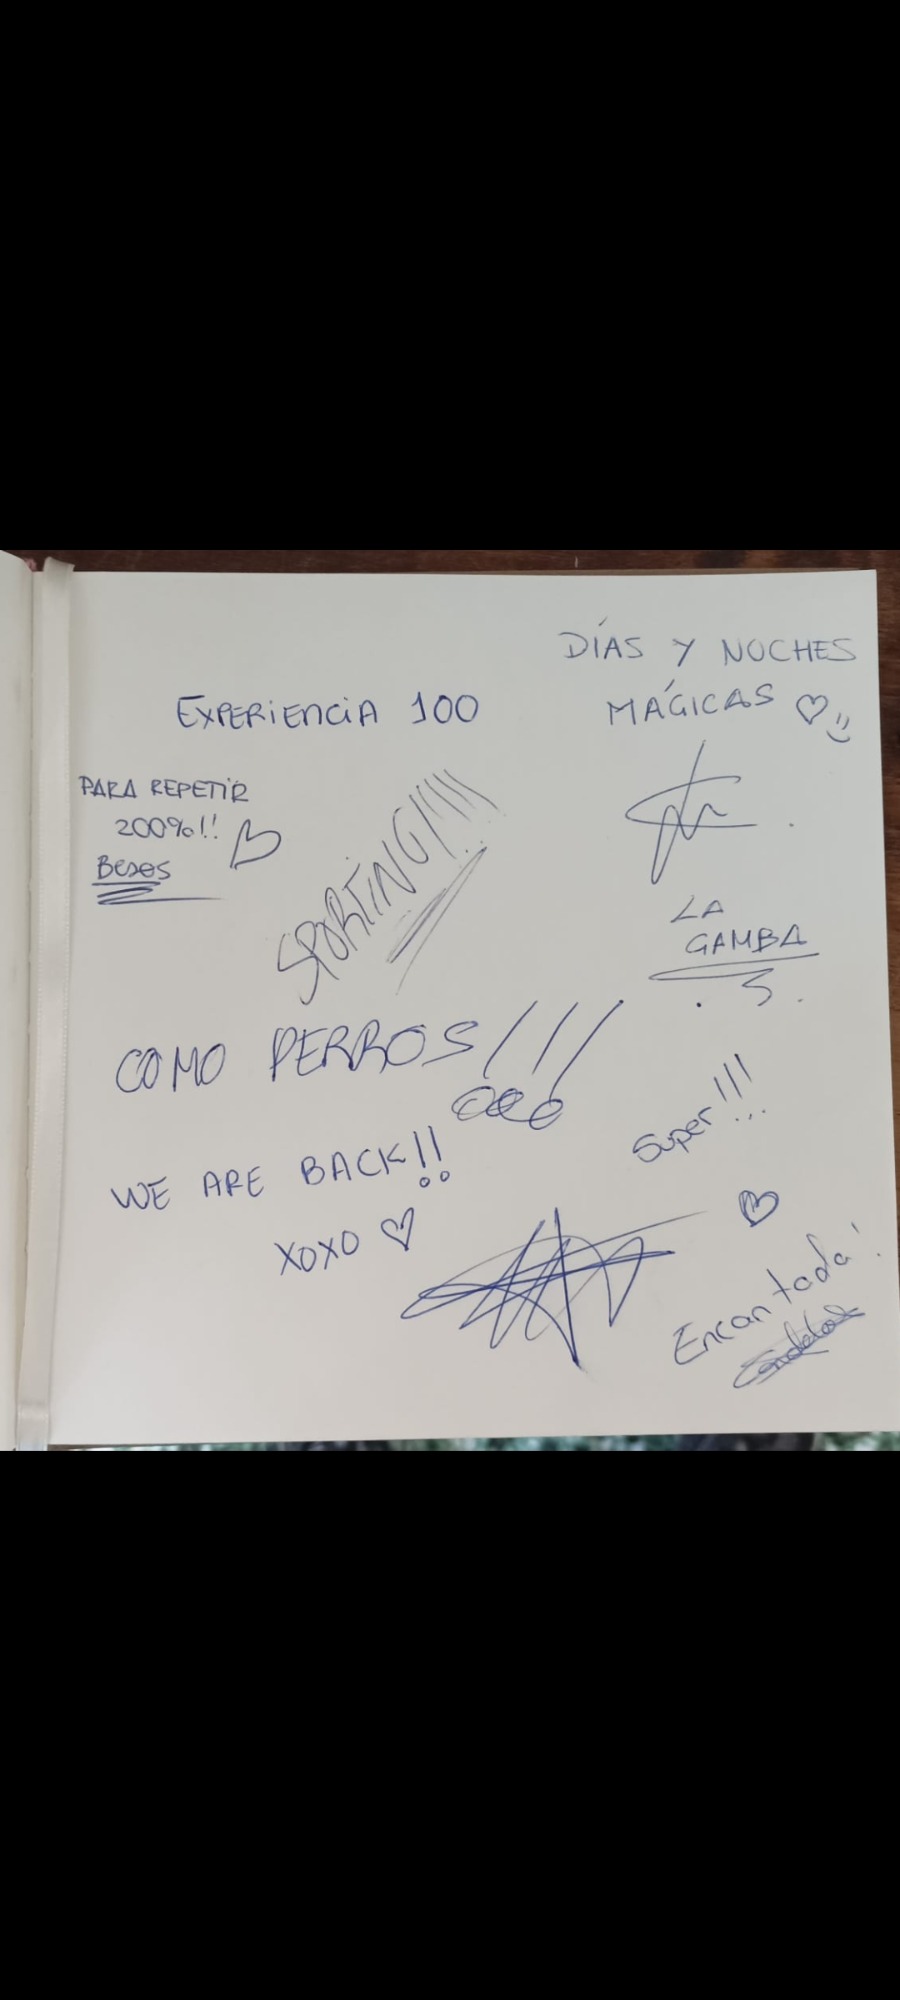 DÍAS Y NOCHES
MÁGICAS
EXPERIENCIA 100
PARA REPETIR
200%!!
BESOS
SPORTING!!!!!
LA
GAMBA
COMO PERROS!!!
Super!!!
WE ARE BACK!!
XOXO
Encantada!